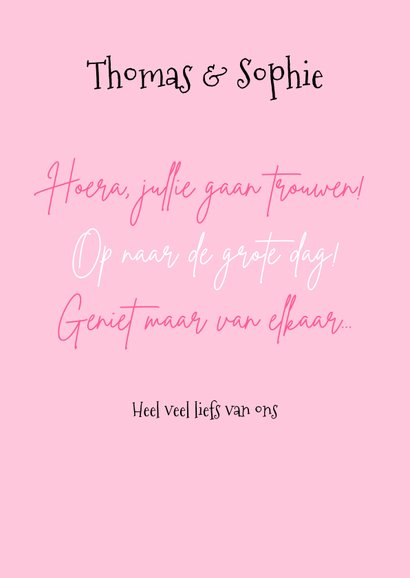 Thomas & Sophie
Hoera, jullie gaan trouwen!
Op naar de grote dag!
Geniet maar van elkaar...
Heel veel liefs van ons